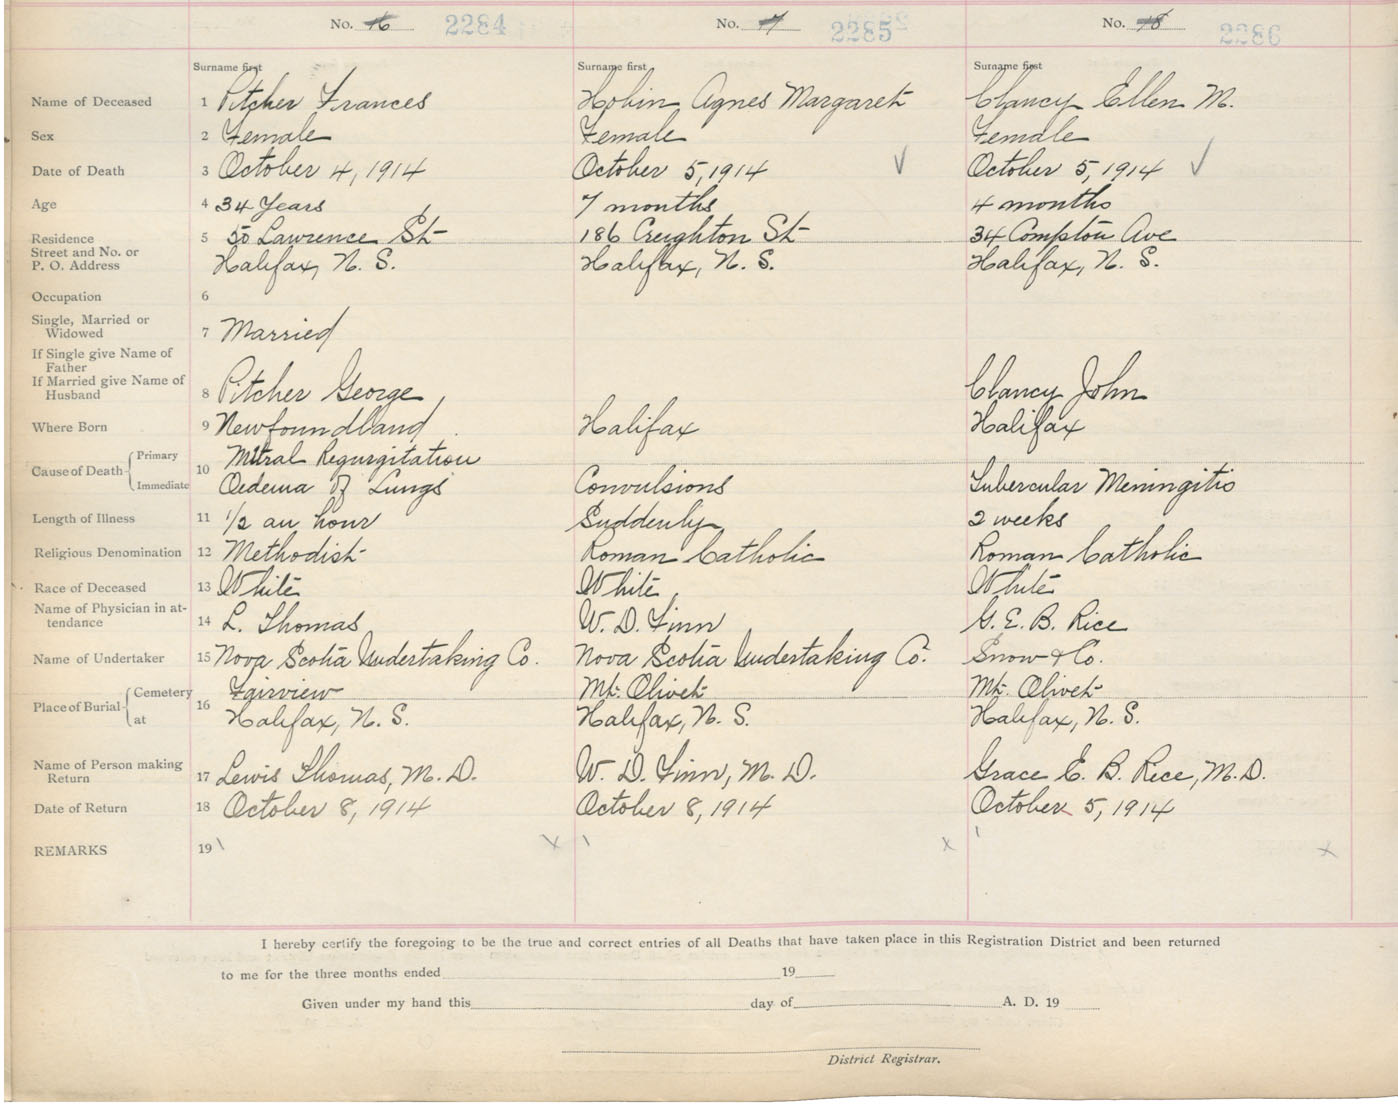 No. 16 2284 No. 17 2285 No. 18 2286
Surname first Surname first Surname first
Name of Deceased 1 Pitcher Frances Hobin Agnes Margaret Clancy Ellen M.
Sex 2 Female Female Female
Date of Death 3 October 4, 1914 October 5, 1914 October 5, 1914
Age 4 34 Years 7 months 4 months
Residence 5 50 Lawrence St 186 Creighton St 34 Compton Ave
Street and No. or
P. O. Address Halifax, N. S. Halifax, N. S. Halifax, N. S.
Occupation 6
Single, Married or
Widowed 7 Married
If Single give Name of
Father
If Married give Name of
Husband 8 Pitcher George Clancy John
Where Born 9 Newfoundland Halifax Halifax
Cause of Death Primary 10 Mitral Regurgitation
Immediate Oedema of Lungs Convulsions Tubercular Meningitis
Length of Illness 11 1/2 an hour Suddenly 2 weeks
Religious Denomination 12 Methodist Roman Catholic Roman Catholic
Race of Deceased 13 White White White
Name of Physician in at-
tendance 14 L. Thomas W. D. Finn G. E. B. Rice
Name of Undertaker 15 Nova Scotia Undertaking Co. Nova Scotia Undertaking Co. Snow & Co.
Place of Burial Cemetery 16 Fairview Mt. Olivet Mt. Olivet
at Halifax, N. S. Halifax, N. S. Halifax, N. S.
Name of Person making
Return 17 Lewis Thomas, M. D. W. D. Finn, M. D. Grace E. B. Rice, M. D.
Date of Return 18 October 8, 1914 October 8, 1914 October 5, 1914
REMARKS 19
I hereby certify the foregoing to be the true and correct entries of all Deaths that have taken place in this Registration District and been returned
to me for the three months ended 19
Given under my hand this day of A. D. 19
District Registrar.